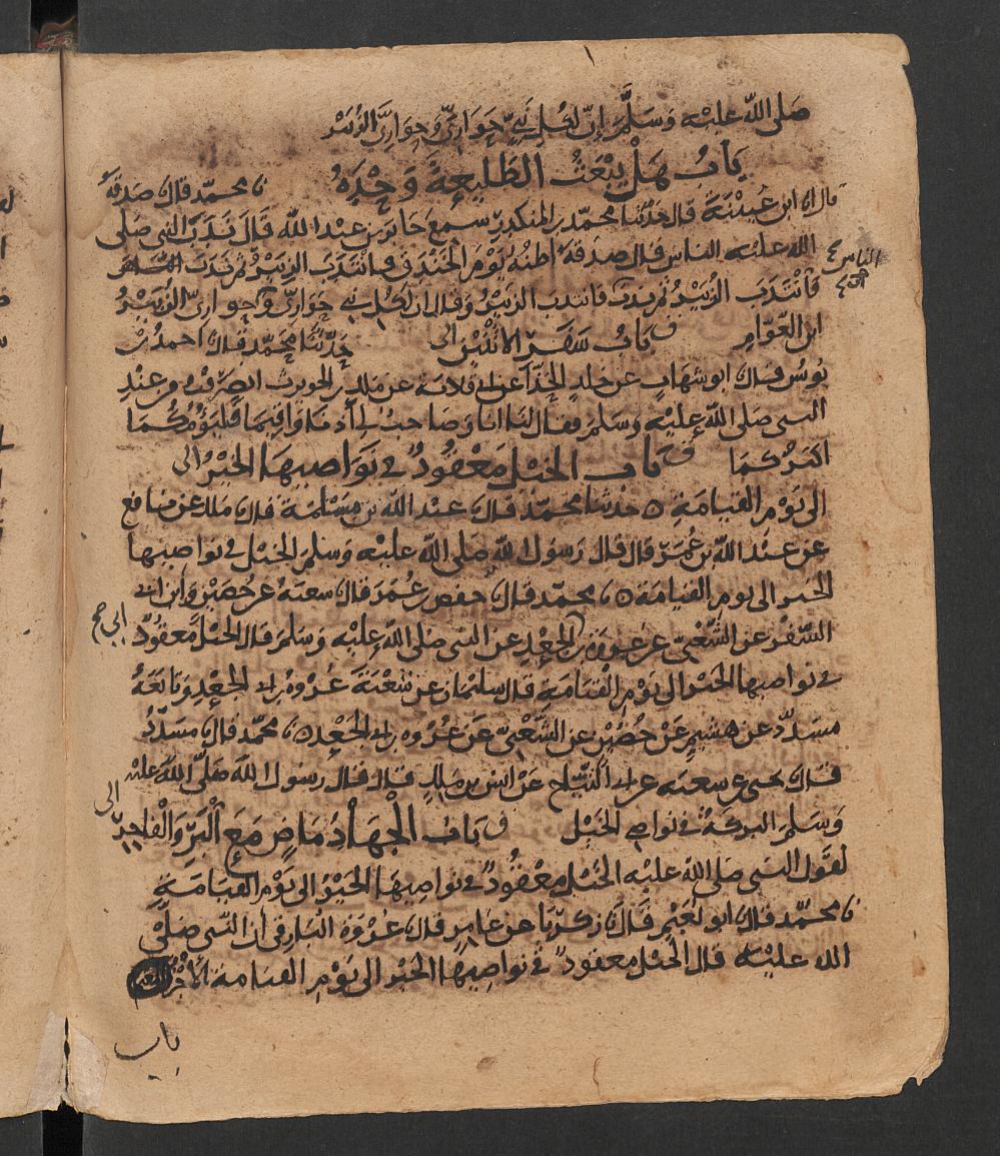 ١
صلى الله عليه وسلم إن لكل نبي حواري وحواري الزبير
باب هل يبعث الطليعة وحده نا محمد قال صدقة
قال انا ابن عيينة قال حدثنا محمد بن المنكدر سمع جابر بن عبد الله قال ندب النبي صلى
الله عليه الناس قال صدقة اظنه يوم الخندق فانتدب الزبير ثم ندب الناس
الناس
فانتدب الزبير ثم ندب فانتدب الزبير وقال ان لكل نبي حواري وحواري الزبير
ابن العوام باب سفر الاثنين الى حدثنا محمد قال احمد بن
يونس قال ابو شهاب عن خلد الحذا عن ابي قلابة عن ملك بن الحويرث انصرفت من عند
النبي صلى الله عليه وسلم فقال لنا انا وصاحب لي أذنا واقيما فليؤمكما
اكبركما باب الخيل معقود في نواصيها الخير الى
الى يوم القيامة ه حدثنا محمد قال عبد الله بن مسلمة قال ملك عن نافع
عن عبد الله بن عمر قال قال رسول الله صلى الله عليه وسلم الخيل في نواصيها
الخير الى يوم القيامة ه نا محمد قال حفص بن عمر قال شعبة عن حصين وابن ابي
السفر عن الشعبي عن عروة بن الجعد عن النبي صلى الله عليه وسلم قال الخيل معقود
ابي
في نواصيها الخير الى يوم القيامة قال سليمان عن شعبة عن عروة بن ابي الجعد وتابعه
مسدد عن هشيم عن حصين عن الشعبي عن عروة بن ابي الجعد ه نا محمد قال مسدد
قال يحيى عن شعبة عن ابي التياح عن انس بن ملك قال قال رسول الله صلى الله عليه
وسلم البركة في نواصي الخيل باب الجهاد ماض مع البر والفاجر الى
لقول النبي صلى الله عليه الخيل معقود في نواصيها الخير الى يوم القيامة
نا محمد قال ابو نعيم قال زكريا عن عامر قال عروة البارقي ان النبي صلى
الله عليه قال الخيل معقود في نواصيها الخير الى يوم القيامة الاجر
باب